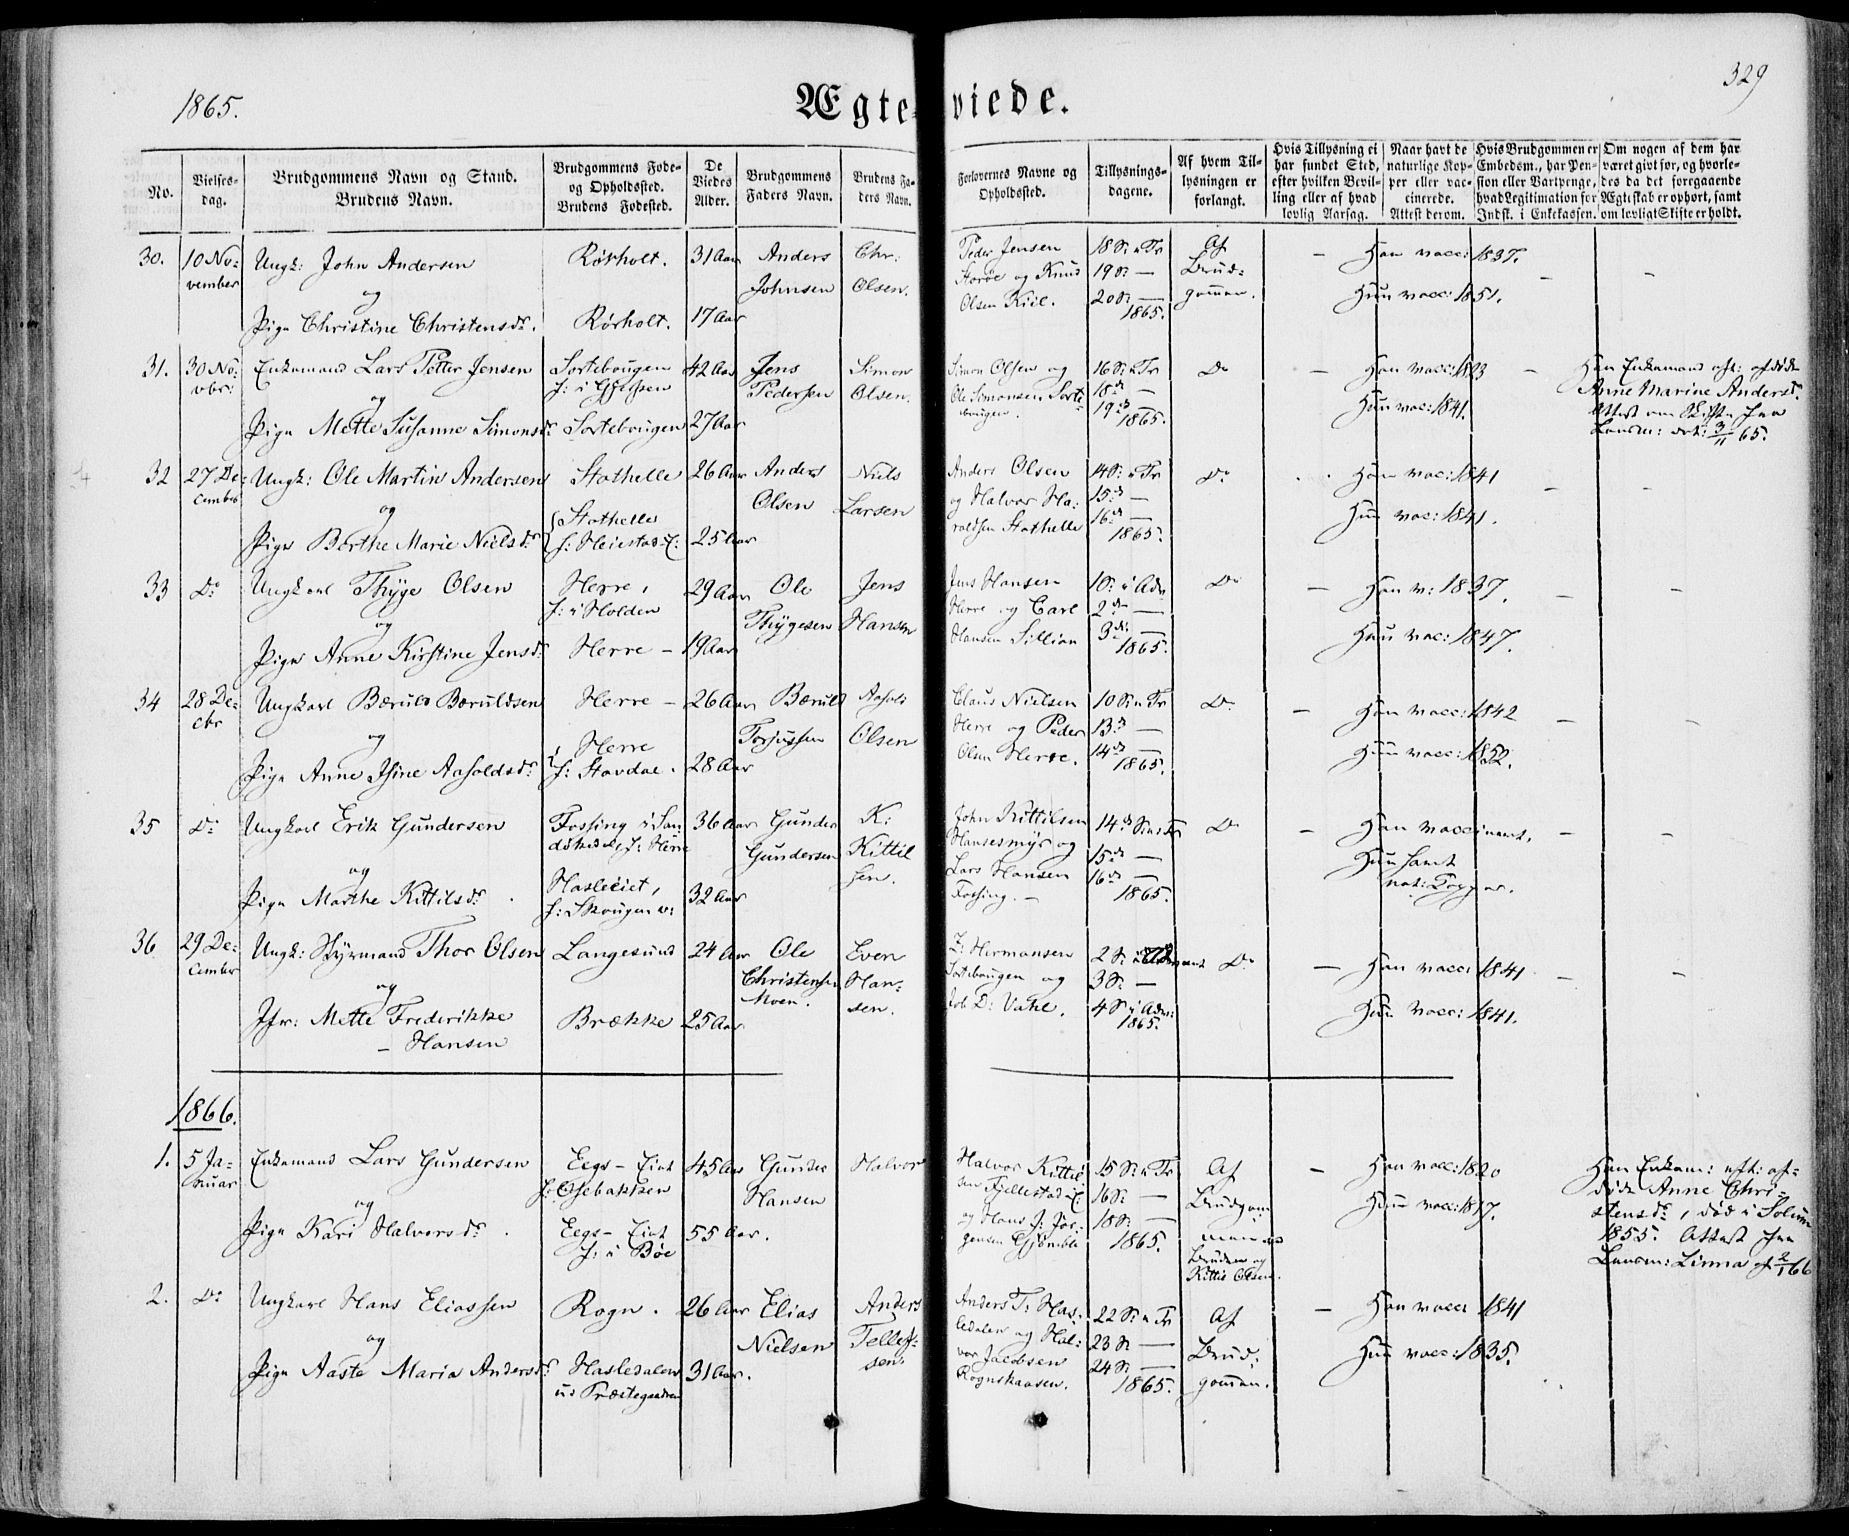 1865.
Ægteviede.
329
No.
Vielses-
dag.
Brudgommens Navn og Stand.
Brudens Navn.
Brudgommens Føde-
og Opholdssted.
Brudens Fødested.
De
Viedes
Alder.
Brudgommens
Faders Navn.
Brudens Fa-
ders Navn.
Forlovernes Navne og
Opholdssted.
Tillysnings-
dagene.
Af hvem Til-
lysningen er
forlangt.
Hvis Tillysning ei
har fundet Sted,
efter hvilken Bevil-
ling eller af hvad
lovlig Aarsag.
Naar havt de
naturlige Kop-
per eller vac-
cinerede.
Attest derom.
Hvis Brudgommen er
Embedsm., har Pen-
sion eller Vartpenge,
hvad Legitimation for
Indsk. i Enkekassen.
Om nogen af dem har
været givt før, og hvorle-
des da det foregaaende
Ægteskab er ophørt, samt
om lovligt Skifte er holdt.
30.
10 No-
vember
Ungk: John Andersen
og
Pige Christine Christensdr.
Rørholt.
Rørholt.
31 Aar
17 Aar
Anders
Johnsen
Chr:
Olsen.
Peder Jensen
Storøe og Knud
Olsen Kiil.
18 S. e Tr
19 S. —
20 S. —
1865.
Af
Brud-
gommen.
—
Han vacc: 1837.
Hun vacc: 1851.
—
—
31.
30 No-
vbr:
Enkemand Lars Petter Jensen
og
Pige Mette Susanne Simonsdr
Sortebougen
f: i Gjerpen
Sortebougen
42 Aar
27 Aar
Jens
Pedersen
Simon
Olsen.
Simon Olsen og
Ole Simonsen Sorte-
bougen.
16 S. e Tr
18de —
19de —
1865.
Do
—
Han vacc: 1823
Hun vac: 1841.
—
Han Enkemand eft: afdøde
Anne Marine Andersdr.
Attest om Skifte fra
Lensm: dat: 3/11 65.
32
27 De-
cember
Ungk: Ole Martin Andersen
og
Pige Berthe Marie Nielsdr
Stathelle
Stathelle
f: Heiestad E:
26 Aar
25 Aar
Anders
Olsen
Niels
Larsen
Anders Olsen
og Halvor Ha-
raldsen Stathelle
14 S. e Tr
15de —
16de —
1865.
Do
Han vac: 1841
Hun vac: 1841.
—
—
33
Do
Ungkarl Thyge Olsen
og
Pige Anne Kirstine Jensdr
Herre,
f: i Holden
Herre —
29 Aar
19 Aar
Ole
Thygesen
Jens
Hansen
Jens Hansen
Herre og Carl
Hansen Sillian
1 S: i Adv
2de —
3de —
1865.
Do
—
Han v: 1837.
Hun vac: 1847.
—
—
34
28 De-
cbr
Ungkarl Bæruld Bæruldsen
og
Pige Anne Isine Aasoldsdr
Herre —
Herre
f: Stavdal.
26 Aar
28 Aar
Bæruld
Torjussen
Aasold
Olsen
Claus Nielsen
Herre og Peder
Olsen Herre.
10 S. e Tr
13de —
14de —
1865.
Do
—
Han vacc: 1842
Hun vacc: 1852.
—
—
35
Do
Ungkarl Erik Gundersen
og
Pige Marthe Kittilsdr.
Fossing i San-
døkedal, f: Herre
Hasleeiet,
f: Skougen v:
36 Aar
32 Aar
Gunder
Gundersen
K:
Kittil
sen.
John Kittilsen
Hansesmyr og
Lars Hansen
Fossing. —
14de S. e Tr
15de —
16de —
1865.
Do
—
Han vaccineret.
Hun havt
nat: Kopper.
—
—
36
29 De-
cember
Ungk: Styrmand Thor Olsen
og
Jfr: Mette Frederikke
— Hansen
Langesund
Brække
24 Aar
25 Aar
Ole
Christensen
Moen.
Even
Han-
sen.
Z: Hermansen
Sortebougen og
Job D: Vahl.
2 S. i Advent
3 S. —
4 S i Adv:
1865.
Do
—
Han vacc: 1841
Hun vacc: 1841.
—
—
1866.
1.
5 Ja-
nuar
Enkemand Lars Gundersen
og
Pige Kari Halvorsdr.
Eegs-Eiet
f: Osebakken
Eegs-Eiet
f: i Bøe
45 Aar
55 Aar.
Gunder
Hansen
Halvor
Halvor Kittil-
sen Fjellestad E:
og Hans J: Jør-
gensen Gjømle
15 S. e Tr
16 S. —
18 S. —
1865.
Af
Brudgom-
men ved
Bruden og
Kittil Olsen.
—
Han vacc: 1820
Hun vacc: 1817.
Han Enkem: eft: af-
døde Anne Chri-
stensdr, død i Solum
1855. Attest fra
Lensm: Linna af 2/1 66
2.
Do
Ungkarl Hans Eliassen
og
Pige Aaste Maria Andersdr
Rogn.
Hasledalen
ud Præstegaarden
26 Aar
31 Aar.
Elias
Nielsen
Anders
Tellef-
sen.
Anders T: Has-
ledalen og Hal-
vor Jacobsen
Rognskaasen.
22 S. e Tr
23 S. —
24 S. —
1865.
Af
Brud-
gommen.
—
Han vacc: 1841
Hun vacc: 1835.